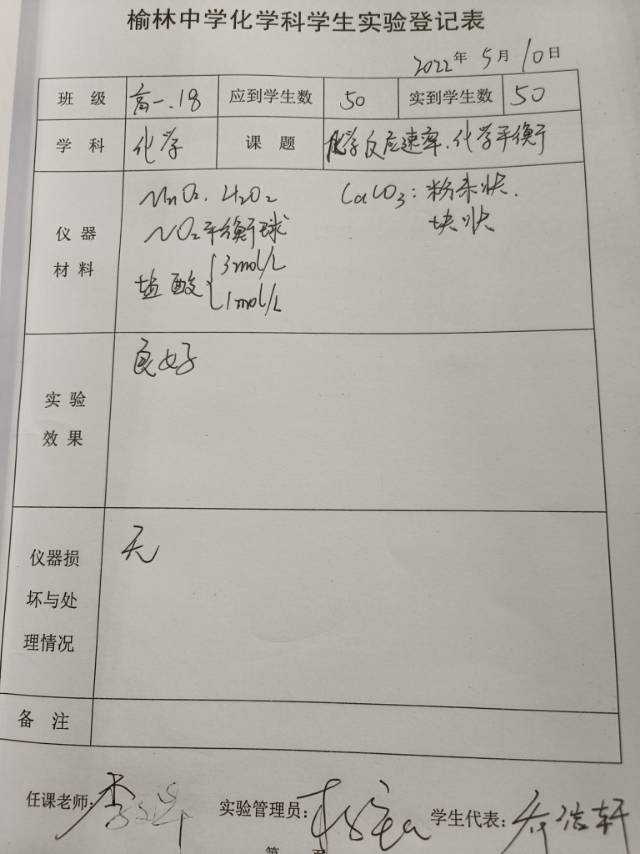 榆林中学化学科学生实验登记表
2022年5月10日
班级 高一.18 应到学生数 50 实到学生数 50
学科 化学 课题 化学反应速率、化学平衡
仪器材料
MnO2、H2O2 CaCO3：粉末状、
NO2平衡球 块状
盐酸 3mol/L
1mol/L
实验效果
良好
仪器损坏与处理情况
无
备注
任课老师： 实验管理员： 学生代表：
第 页